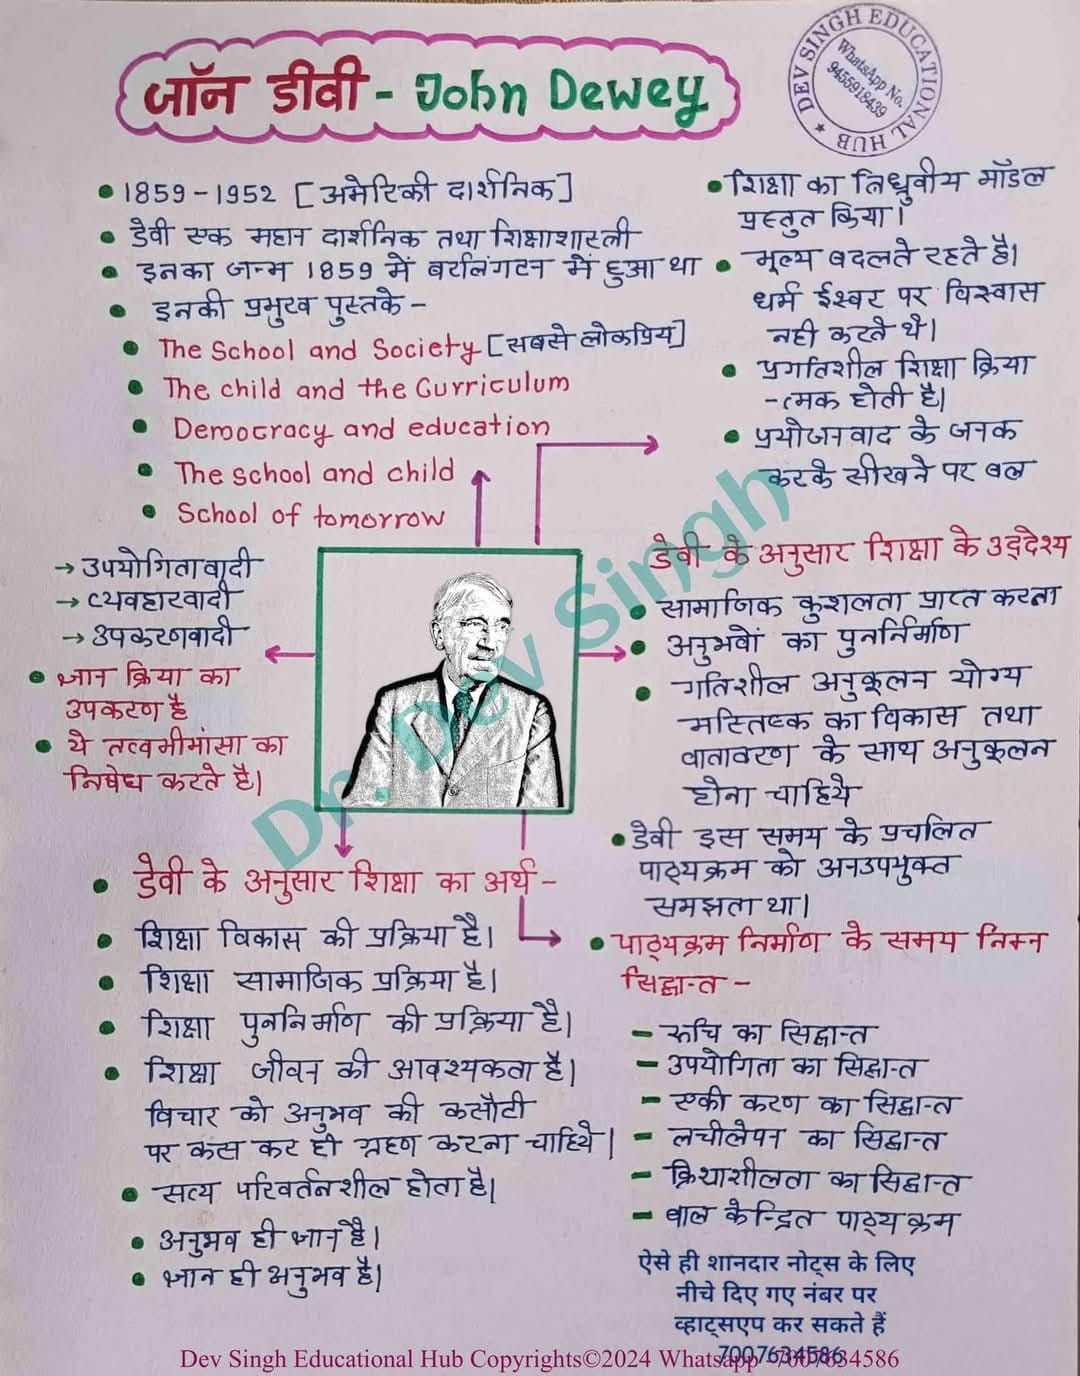 जॉन डीवी - John Dewey
DEV SINGH EDUCATIONAL HUB
WhatsApp No.
9455918439
• 1859-1952 [अमेरिकी दार्शनिक]
• डेवी एक महान दार्शनिक तथा शिक्षाशास्त्री
• इनका जन्म 1859 में बर्टलिंगटन में हुआ था
• इनकी प्रमुख पुस्तके -
• The School and Society [सबसे लोकप्रिय]
• The child and the Curriculum
• Democracy and education
• The school and child
• School of tomorrow
• शिक्षा का त्रिध्रुवीय मॉडल
प्रस्तुत किया।
• मूल्य बदलते रहते है।
धर्म ईश्वर पर विश्वास
नही करते थे।
• प्रगतिशील शिक्षा क्रिया
-त्मक होती है।
• प्रयोजनवाद के जनक
करके सीखने पर बल
→ उपयोगितावादी
→ व्यवहारवादी
→ उपकरणवादी
• ज्ञान क्रिया का
उपकरण है
• ये तत्वमीमांसा का
निषेध करते है।
डेवी के अनुसार शिक्षा के उद्देश्य
• सामाजिक कुशलता प्राप्त करना
• अनुभवों का पुनर्निर्माण
• गतिशील अनुकूलन योग्य
मस्तिष्क का विकास तथा
वातावरण के साथ अनुकूलन
होना चाहिये
• डेवी इस समय के प्रचलित
पाठ्यक्रम को अनउपयुक्त
समझता था।
• डेवी के अनुसार शिक्षा का अर्थ -
• शिक्षा विकास की प्रक्रिया है।
• शिक्षा सामाजिक प्रक्रिया है।
• शिक्षा पुननिर्माण की प्रक्रिया है।
• शिक्षा जीवन की आवश्यकता है।
विचार को अनुभव की कसौटी
पर कस कर ही ग्रहण करना चाहिये।
• सत्य परिवर्तनशील होता है।
• अनुभव ही ज्ञान है।
• ज्ञान ही अनुभव है।
• पाठ्यक्रम निर्माण के समय निम्न
सिद्धान्त -
- रुचि का सिद्धान्त
- उपयोगिता का सिद्धान्त
- एकी करण का सिद्धान्त
- लचीलेपन का सिद्धान्त
- क्रियाशीलता का सिद्धान्त
- बाल केन्द्रित पाठ्यक्रम
Dr. Dev Singh
ऐसे ही शानदार नोट्स के लिए
नीचे दिए गए नंबर पर
व्हाट्सएप कर सकते हैं
7007634586
Dev Singh Educational Hub Copyrights©2024 Whatsapp -7007634586